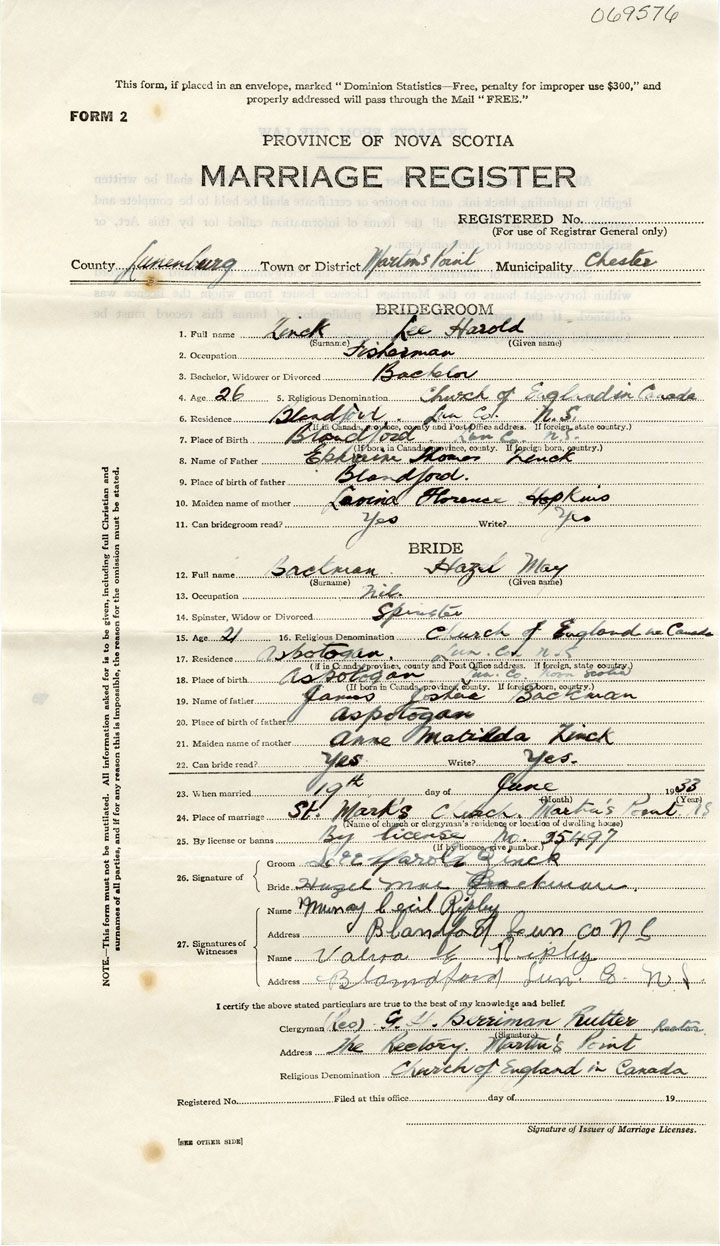 069576
This form, if placed in an envelope, marked "Dominion Statistics—Free, penalty for improper use $300," and
properly addressed will pass through the Mail "FREE."
FORM 2
PROVINCE OF NOVA SCOTIA
MARRIAGE REGISTER
REGISTERED No.
(For use of Registrar General only)
County Lunenburg Town or District Martin's Point Municipality Chester
BRIDEGROOM
1. Full name Zinck Lee Harold
(Surname) (Given name)
2. Occupation Fisherman
3. Bachelor, Widower or Divorced Bachelor
4. Age 26 5. Religious Denomination Church of England in Canada
6. Residence Blandford. Lun Co. N.S.
(If in Canada, province, county and Post Office address. If foreign, state country.)
7. Place of Birth Blandford. Lun Co. N.S.
(If born in Canada, province, county. If foreign born, country.)
8. Name of Father Ephraim Thomas Zinck
9. Place of birth of father Blandford.
10. Maiden name of mother Lavina Florence Hopkins
11. Can bridegroom read? Yes Write? Yes
BRIDE
12. Full name Backman Hazel May
(Surname) (Given name)
13. Occupation nil.
14. Spinster, Widow or Divorced Spinster
15. Age 21 16. Religious Denomination Church of England in Canada
17. Residence Aspotogan Lun. Co. N.S
(If in Canada, province, county and Post Office address. If foreign, state country.)
18. Place of birth Aspotogan Lun. Co. Nova Scotia
(If born in Canada, province, county. If foreign born, country.)
19. Name of father James Backman
20. Place of birth of father Aspotogan
21. Maiden name of mother Anne Matilda Zinck
22. Can bride read? Yes Write? Yes.
23. When married 19th day of June 1933
(Month) (Year)
24. Place of marriage St. Mark's Church. Martin's Point NS
(Name of church or clergyman's residence or location of dwelling house)
25. By license or banns By license No. 35497
(If by licence, give number.)
26. Signature of
Groom Lee Harold Zinck
Bride Hazel Mae Backman.
27. Signatures of Witnesses
Name Murray Cecil Ripley
Address Blandford Lun Co N S
Name Ripley
Address Blandford Lun. Co. N.S.
I certify the above stated particulars are true to the best of my knowledge and belief.
Clergyman (Rev) Berriman Rutter Rector.
(Signature)
Address The Rectory. Martin's Point
Religious Denomination Church of England in Canada
Registered No. Filed at this office day of 19
Signature of Issuer of Marriage Licenses.
[SEE OTHER SIDE]
NOTE.—This form must not be mutilated. All information asked for is to be given, including full Christian and
surnames of all parties, and if for any reason this is impossible, the reason for the omission must be stated.